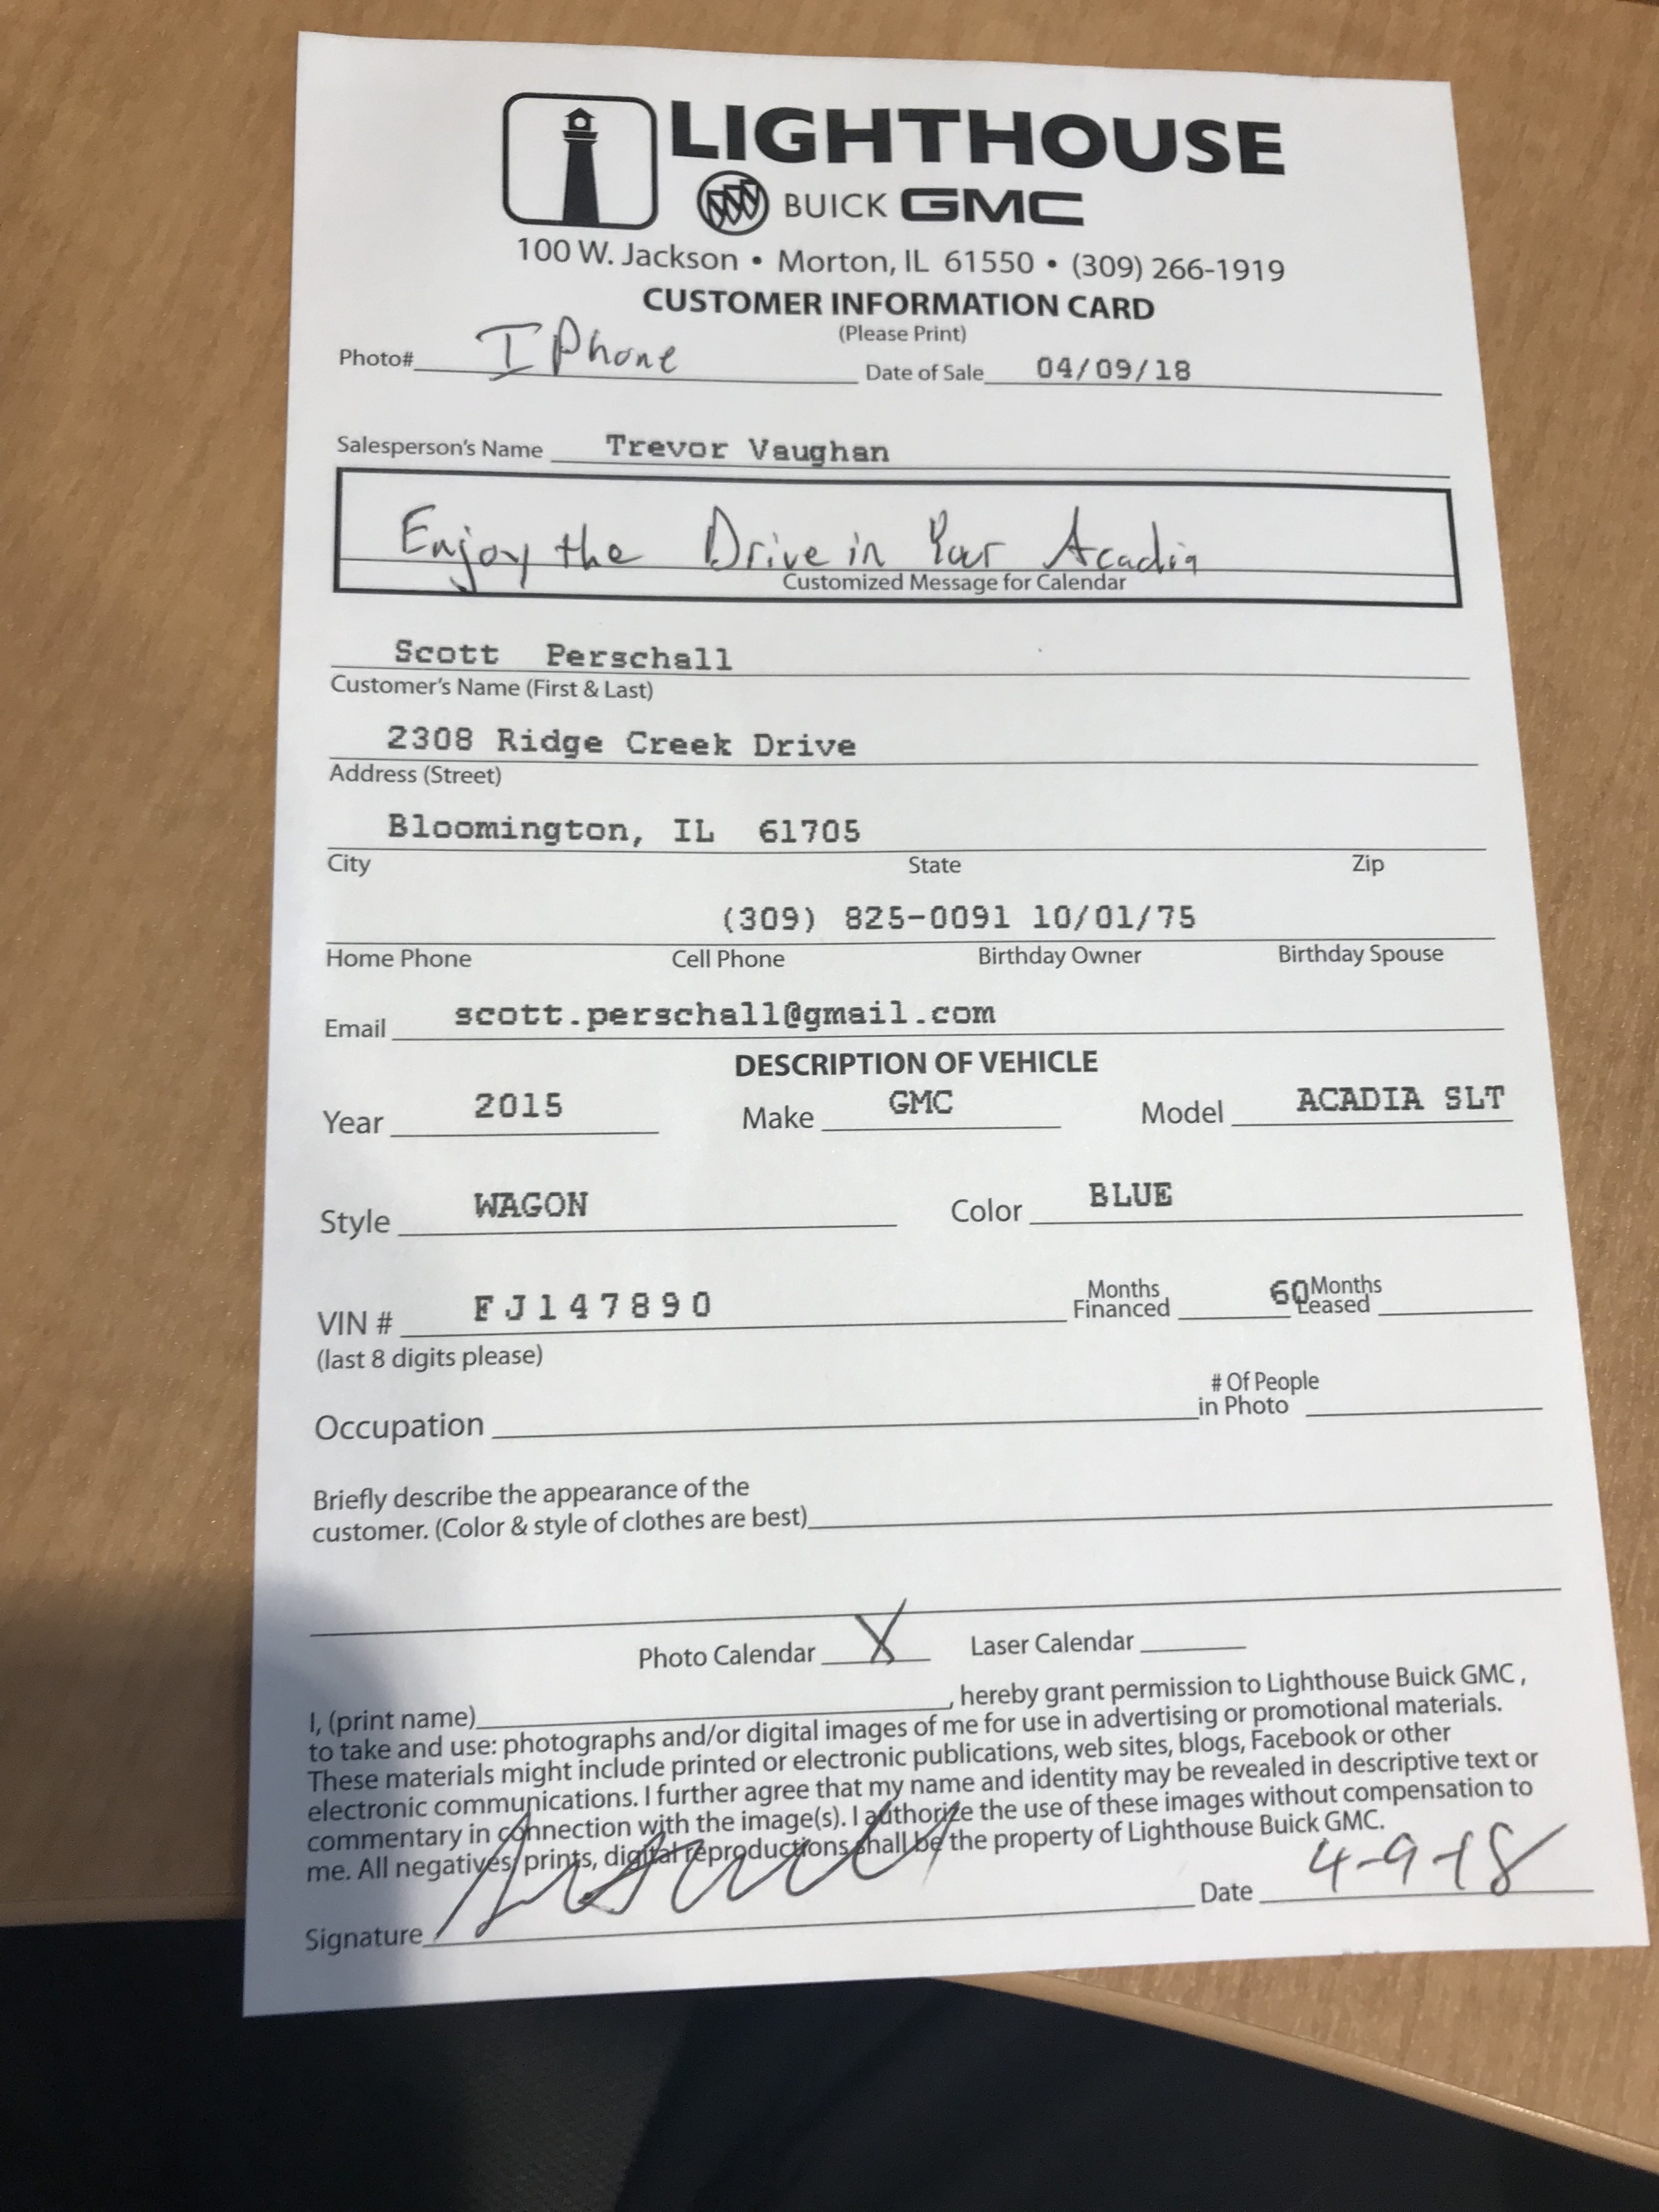 LIGHTHOUSE
BUICK GMC
100 W. Jackson • Morton, IL 61550 • (309) 266-1919
CUSTOMER INFORMATION CARD
(Please Print)
Photo# I Phone Date of Sale 04/09/18
Salesperson's Name Trevor Vaughan
Enjoy the Drive in Your Acadia
Customized Message for Calendar
Scott Perschall
Customer's Name (First & Last)
2308 Ridge Creek Drive
Address (Street)
Bloomington, IL 61705
City State Zip
(309) 825-0091 10/01/75
Home Phone Cell Phone Birthday Owner Birthday Spouse
Email scott.perschall@gmail.com
DESCRIPTION OF VEHICLE
Year 2015 Make GMC Model ACADIA SLT
Style WAGON Color BLUE
VIN # FJ147890 Months Financed 60 Months Leased
(last 8 digits please)
Occupation # Of People in Photo
Briefly describe the appearance of the
customer. (Color & style of clothes are best)
Photo Calendar X Laser Calendar
I, (print name) , hereby grant permission to Lighthouse Buick GMC ,
to take and use: photographs and/or digital images of me for use in advertising or promotional materials.
These materials might include printed or electronic publications, web sites, blogs, Facebook or other
electronic communications. I further agree that my name and identity may be revealed in descriptive text or
commentary in connection with the image(s). I authorize the use of these images without compensation to
me. All negatives, prints, digital reproductions shall be the property of Lighthouse Buick GMC.
Signature Date 4-9-18